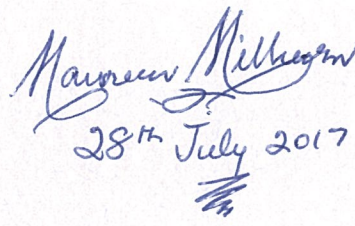 Maureen Milligan
28th July 2017